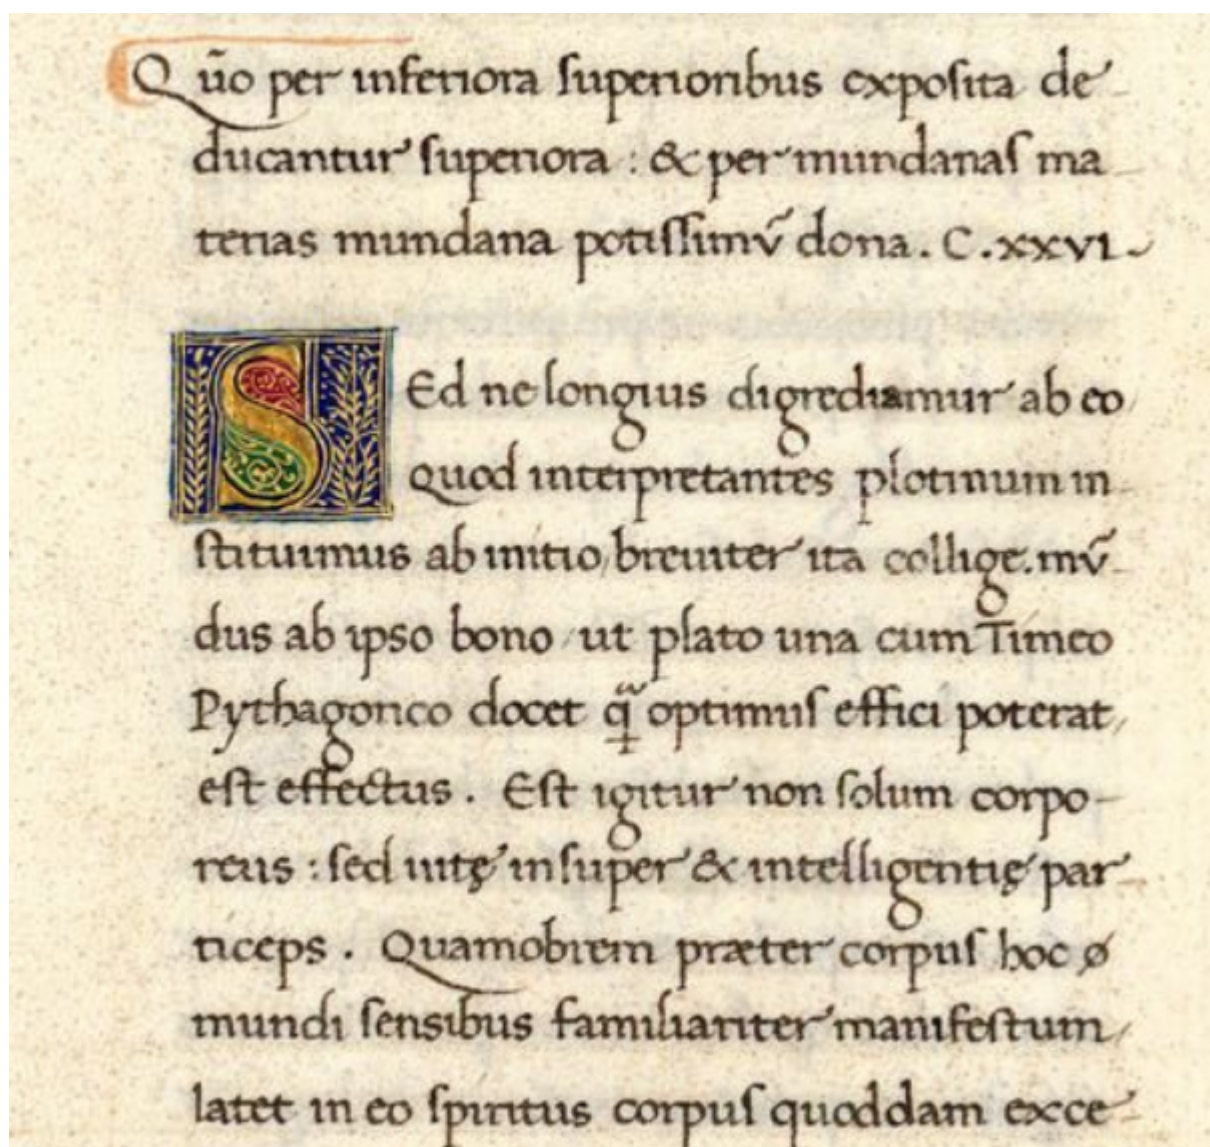 Qũo per inferiora superioribus exposita de-
ducantur superiora : & per mundanas ma-
terias mundana potissimũ dona. C.XXVI.
SEd ne longius digrediamur ab eo/
quod interpretantes plotinum in-
stituimus ab initio/breuiter ita collige.mũ-
dus ab ipso bono/ut plato una cum Timeo
Pythagorico docet q̃ optimus effici poterat/
est effectus. Est igitur non solum corpo-
reus : sed uitę insuper & intelligentię par-
ticeps. Quamobrem præter corpus hoc ø
mundi sensibus familiariter manifestum/
latet in eo spiritus corpus quoddam exce-